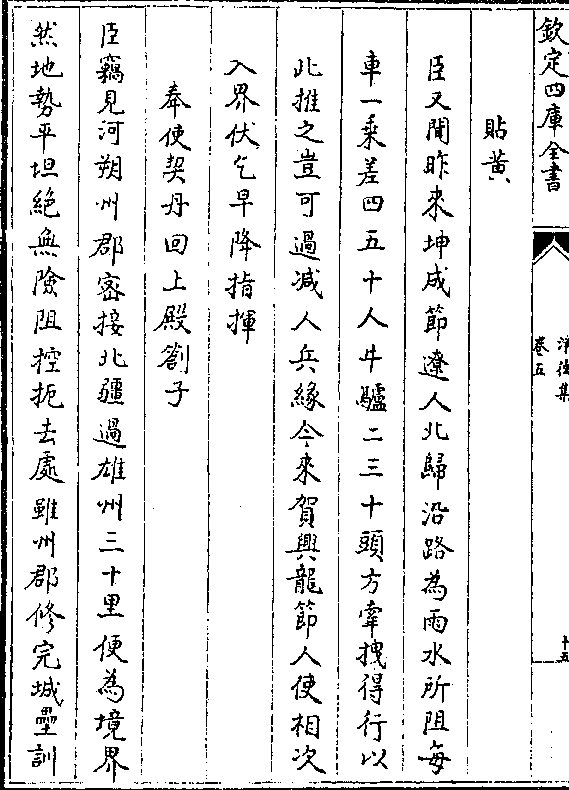 欽定四庫全書
卷五
十五
貼黄
臣又聞昨來坤成節遼人北歸沿路為雨水所阻每
車一乘差四五十人牛驢二三十頭方牽拽得行以
此推之豈可過减人兵緣今來賀興龍節人使相次
入界伏乞早降指揮
奉使契丹回上殿劄子
臣竊見河朔州郡密接北疆過雄州三十里便為境界
然地勢平坦絶無險阻控扼去處雖州郡修完城壘訓